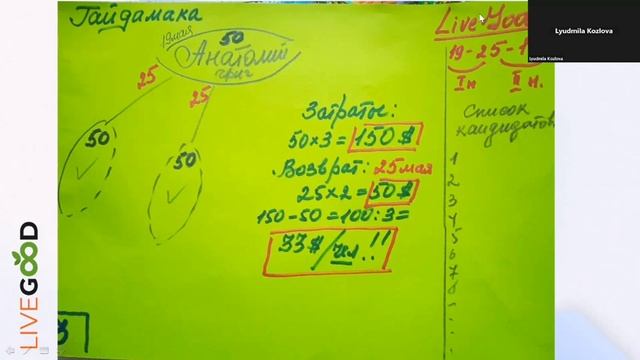 Гайдамака
19мая
50
Анатолий
григ
25
25
50
50
Затраты:
50×3=150$
Возврат: 25мая
25×2=50$
150-50=100:3=
33$/чел.!!
Live Goo
19-25-1
I н
II н.
Список
кандидатов
1
2
3
4
5
6
7
8
Lyudmila Kozlova
Lyudmila Kozlova
LIVEGOOD